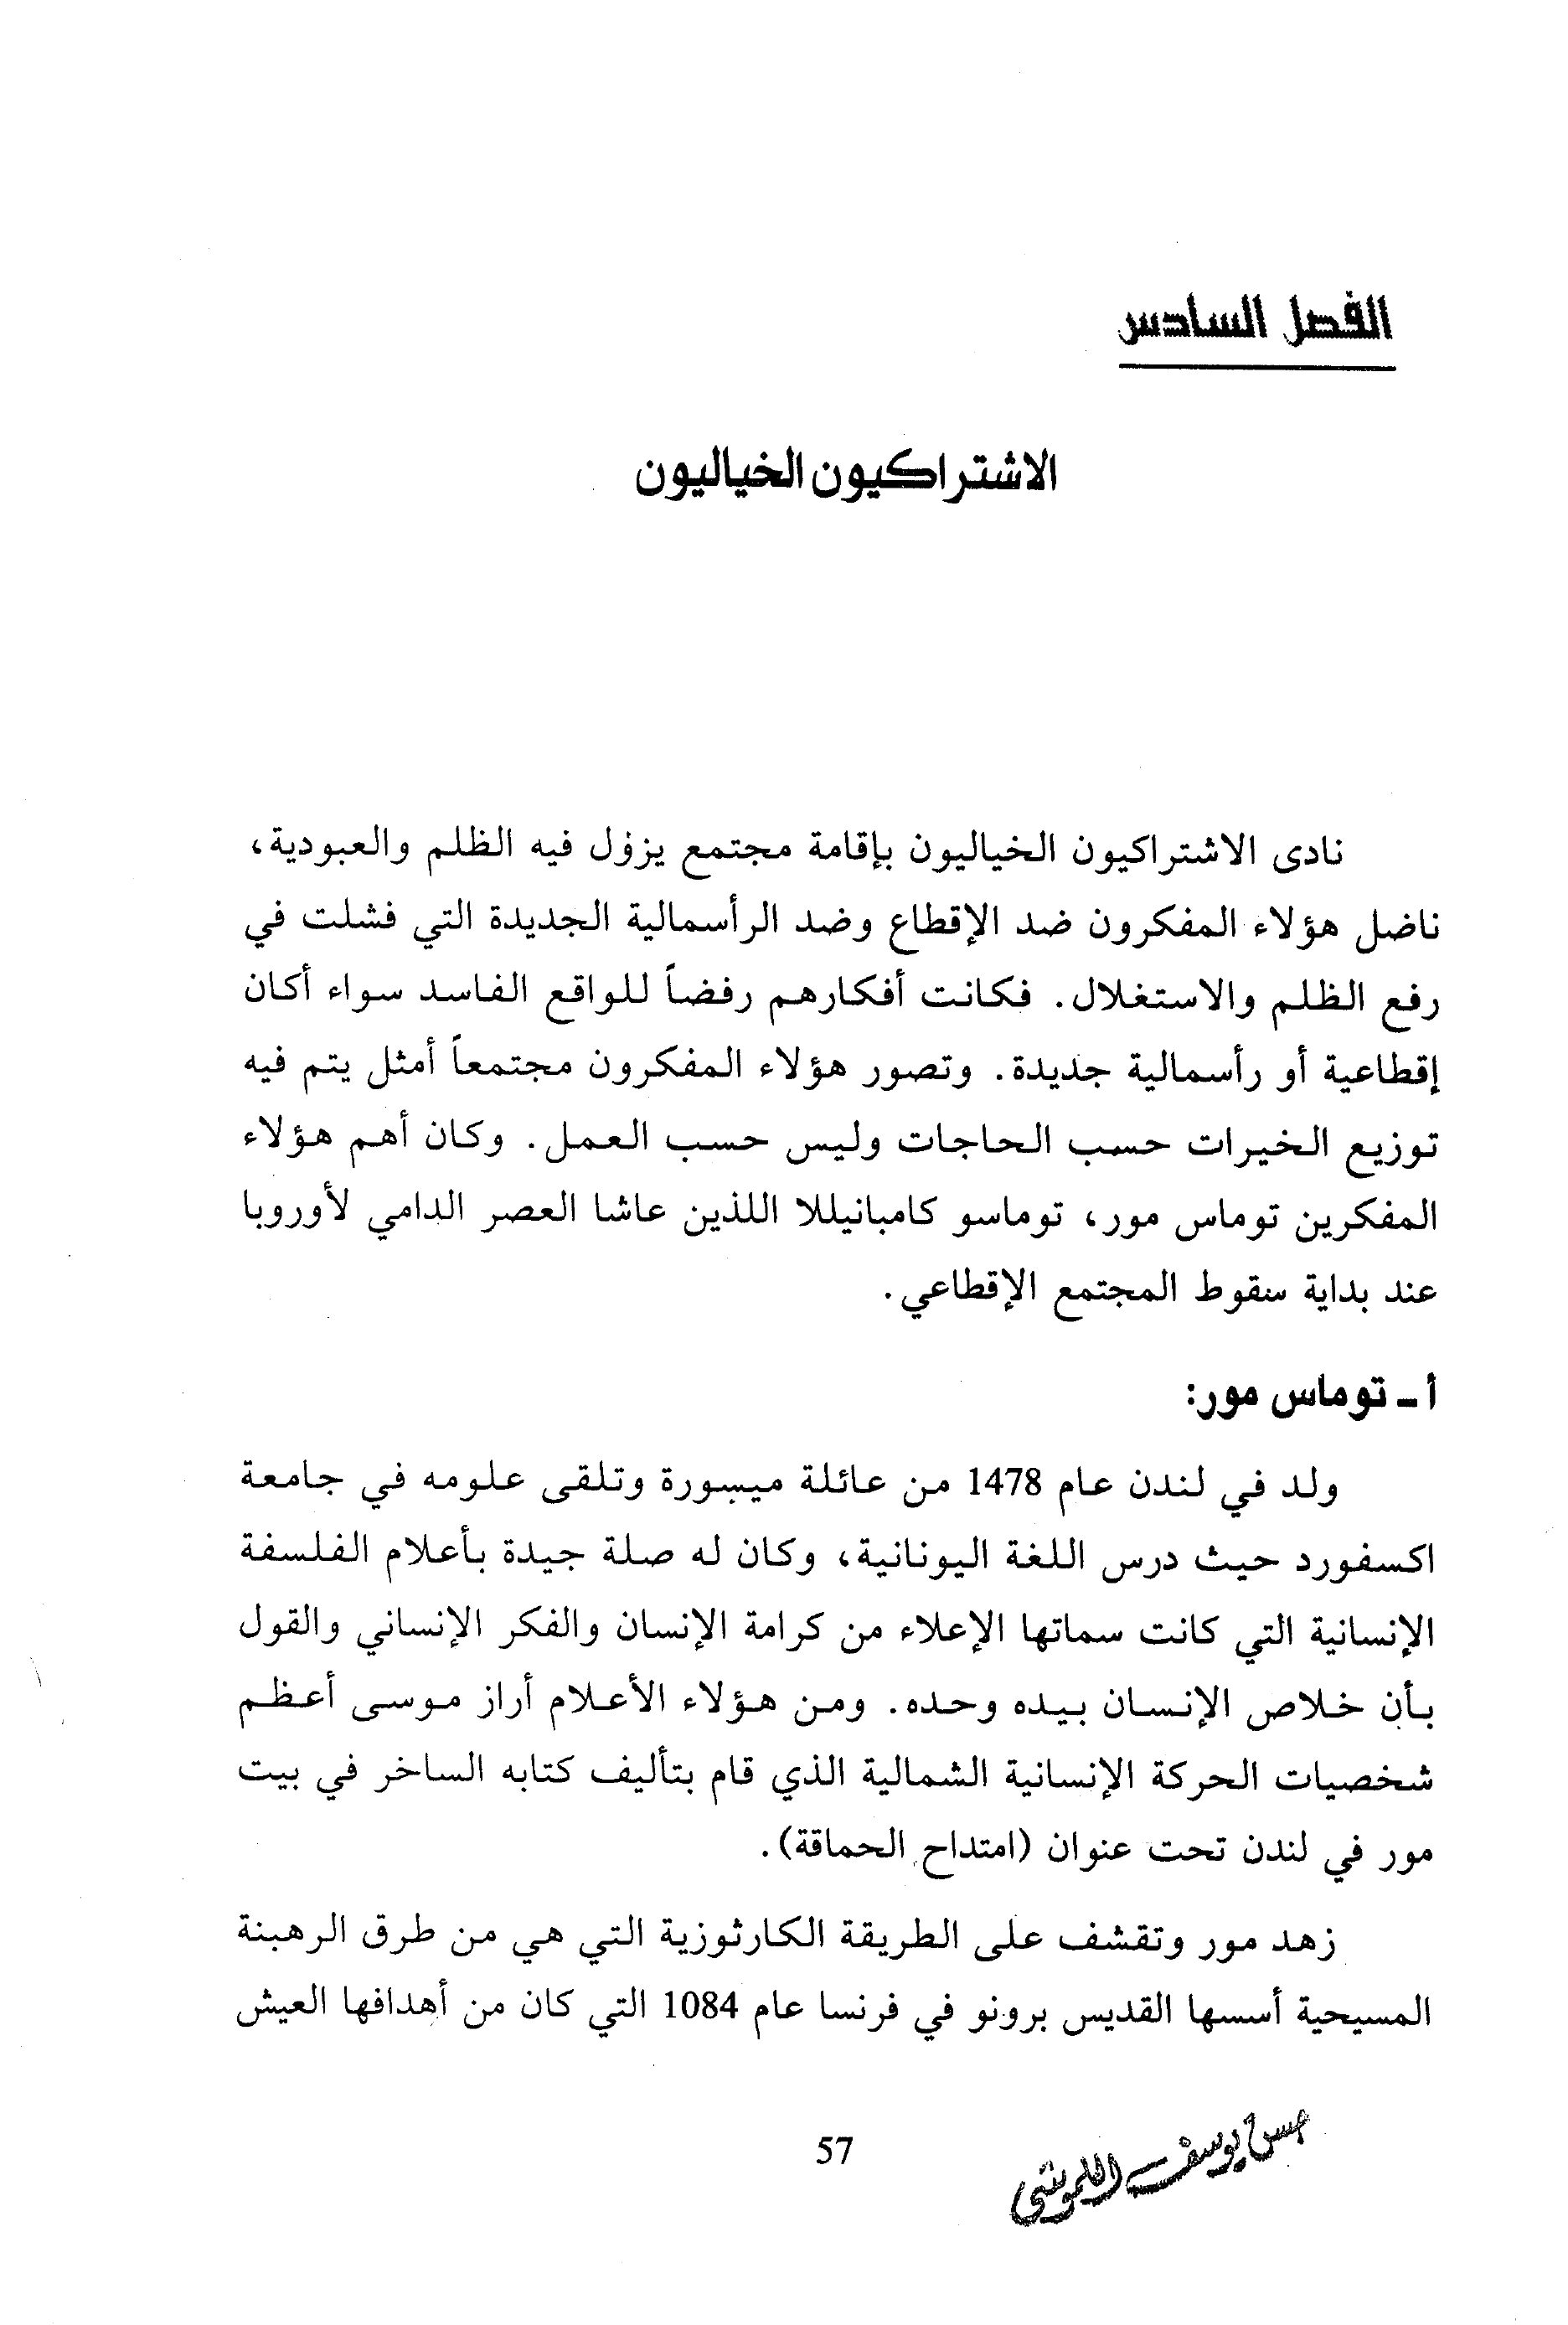 الفصل السادس
الاشتراكيون الخياليون
نادى الاشتراكيون الخياليون بإقامة مجتمع يزؤل فيه الظلم والعبودية،
ناضل هؤلاء المفكرون ضد الإقطاع وضد الرأسمالية الجديدة التي فشلت في
رفع الظلم والاستغلال. فكانت أفكارهم رفضاً للواقع الفاسد سواء أكان
إقطاعية أو رأسمالية جديدة. وتصور هؤلاء المفكرون مجتمعاً أمثل يتم فيه
توزيع الخيرات حسب الحاجات وليس حسب العمل. وكان أهم هؤلاء
المفكرين توماس مور، توماسو كامبانيللا اللذين عاشا العصر الدامي لأوروبا
عند بداية سقوط المجتمع الإقطاعي.
أ ـ توماس مور:
ولد في لندن عام 1478 من عائلة ميسورة وتلقى علومه في جامعة
اكسفورد حيث درس اللغة اليونانية، وكان له صلة جيدة بأعلام الفلسفة
الإنسانية التي كانت سماتها الإعلاء من كرامة الإنسان والفكر الإنساني والقول
بأن خلاص الإنسان بيده وحده. ومن هؤلاء الأعلام أراز موسى أعظم
شخصيات الحركة الإنسانية الشمالية الذي قام بتأليف كتابه الساخر في بيت
مور في لندن تحت عنوان (امتداح الحماقة).
زهد مور وتقشف على الطريقة الكارثوزية التي هي من طرق الرهبنة
المسيحية أسسها القديس برونو في فرنسا عام 1084 التي كان من أهدافها العيش
57
حسن يوسف